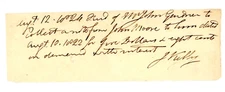 Sept 12. 1824 Recd of Mr John Gardner to
Collect a note from John Moore to him dated
Augt 10. 1822 for five Dollars & eight cents
on demand with interest
J